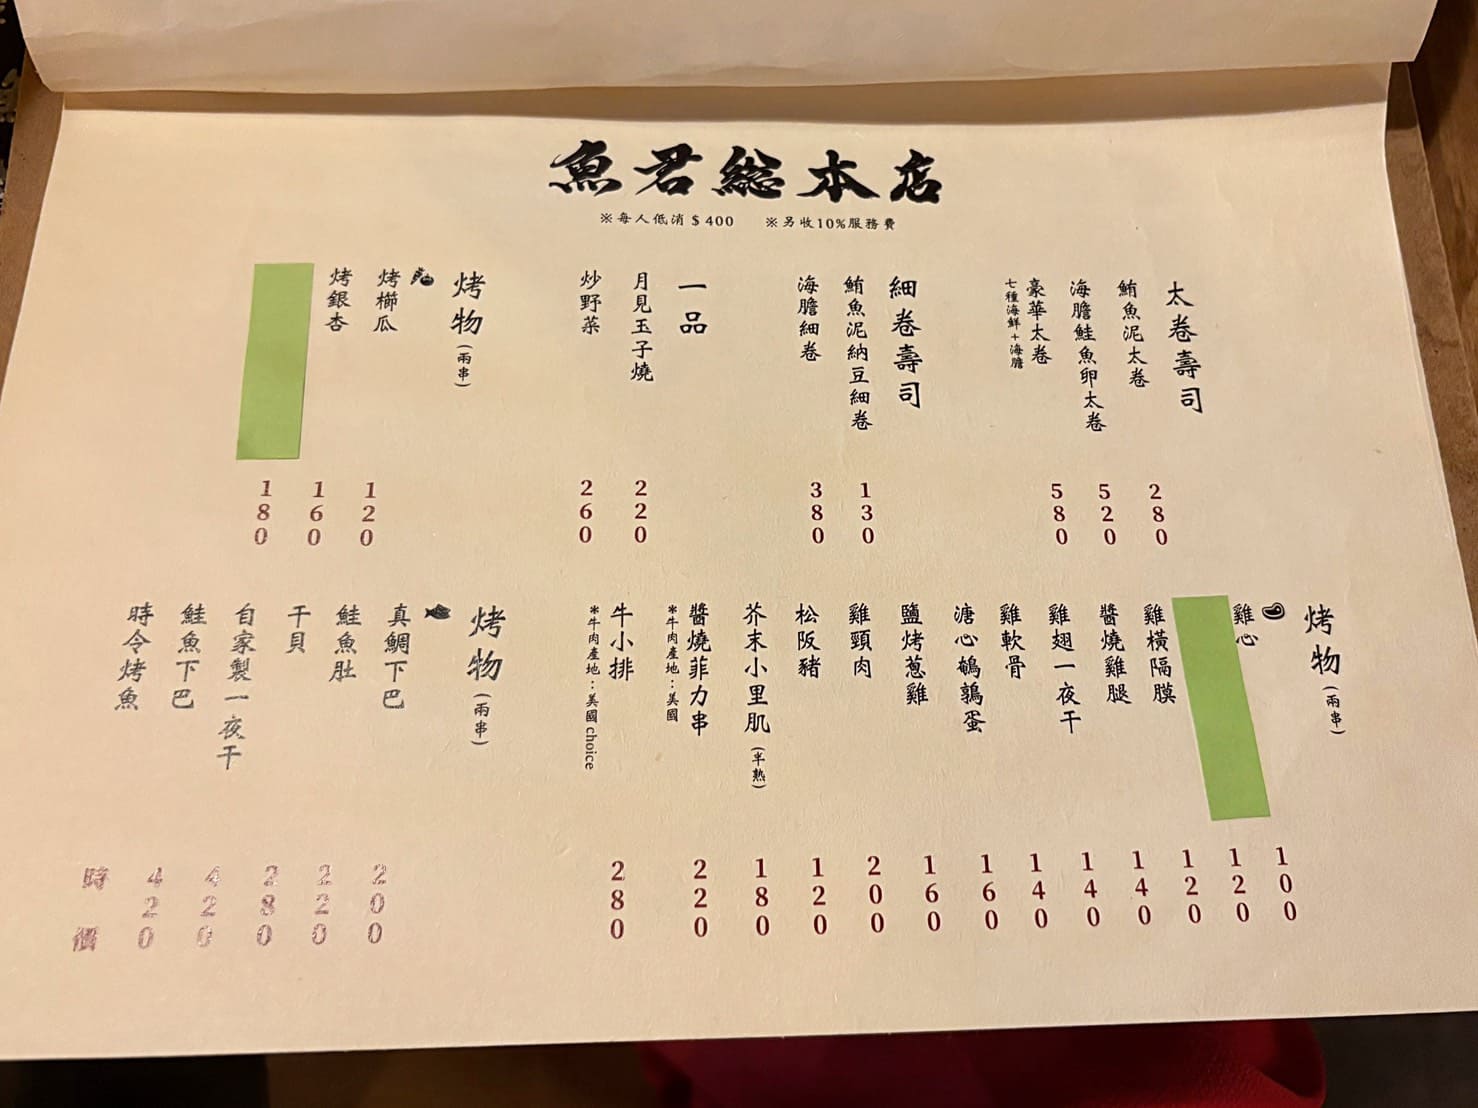 魚君総本店
※每人低消$400　※另收10%服務費
太卷壽司
鮪魚泥太卷 280
海膽鮭魚卵太卷 520
豪華太卷 580
七種海鮮+海膽
細卷壽司
鮪魚泥納豆細卷 130
海膽細卷 380
一品
月見玉子燒 220
炒野菜 260
烤物(兩串)
烤櫛瓜 120
烤銀杏 160
180
烤物(兩串)
雞心 100
120
雞橫隔膜 120
醬燒雞腿 140
雞翅一夜干 140
雞軟骨 140
溏心鵪鶉蛋 160
鹽烤蔥雞 160
雞頸肉 200
松阪豬 120
芥末小里肌(半熟) 180
醬燒菲力串 220
*牛肉產地:美國
牛小排 280
*牛肉產地:美國choice
烤物(兩串)
真鯛下巴 200
鮭魚肚 220
干貝 280
自家製一夜干 420
鮭魚下巴 420
時令烤魚 時價